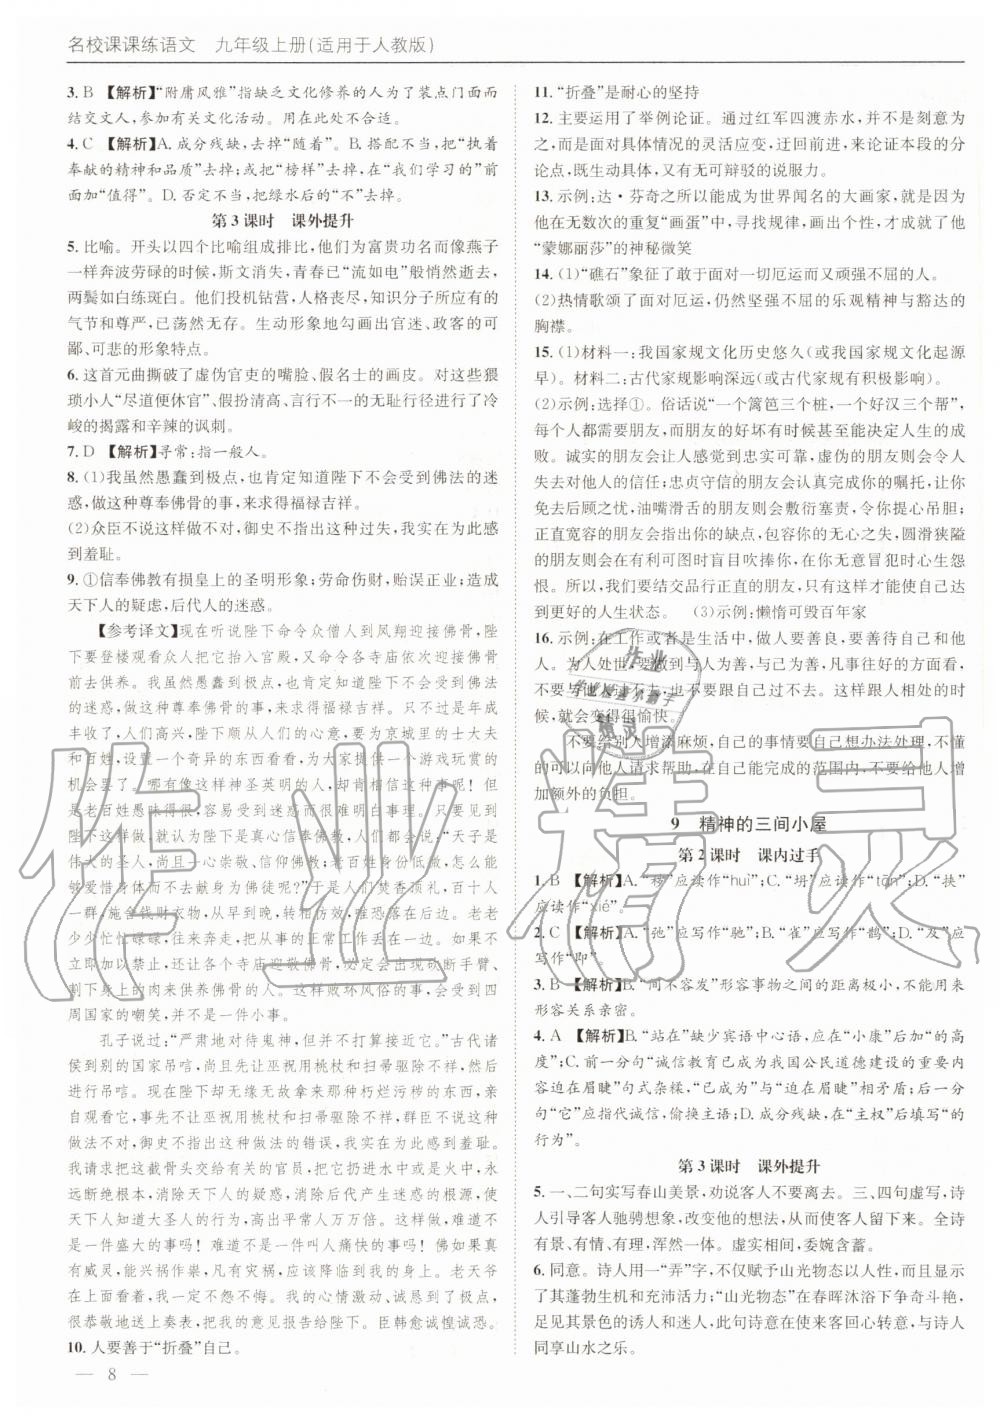 名校课课练语文　九年级上册(适用于人教版)
3. B 【解析】“附庸风雅”指缺乏文化修养的人为了装点门面而
结交文人，参加有关文化活动。用在此处不合适。
4. C 【解析】A. 成分残缺，去掉“随着”。B. 搭配不当，把“执着
奉献的精神和品质”去掉；或把“榜样”去掉；或在“我们学习的”前
面加“值得”。D. 否定不当，把绿水后的“不”去掉。
第 3 课时　课外提升
5. 比喻。开头以四个比喻组成排比，他们为富贵功名而像燕子
一样奔波劳碌的时候，斯文消失，青春已“流如电”般悄然逝去，
两鬓如白练斑白。他们投机钻营，人格丧尽，知识分子所应有的
气节和尊严，已荡然无存。生动形象地勾画出官迷、政客的可
鄙、可悲的形象特点。
6. 这首元曲撕破了虚伪官吏的嘴脸、假名士的画皮。对这些猥
琐小人“尽道便休官”、假扮清高、言行不一的无耻行径进行了冷
峻的揭露和辛辣的讽刺。
7. D 【解析】寻常：指一般人。
8. (1)我虽然愚蠢到极点，也肯定知道陛下不会受到佛法的迷
惑，做这种尊奉佛骨的事，来求得福禄吉祥。
(2)众臣不说这样做不对，御史不指出这种过失，我实在为此感
到羞耻。
9. ①信奉佛教有损皇上的圣明形象；劳命伤财，贻误正业；造成
天下人的疑虑，后代人的迷惑。
【参考译文】现在听说陛下命令众僧人到凤翔迎接佛骨，陛
下要登楼观看众人把它抬入宫殿，又命令各寺庙依次迎接佛骨
前去供养。我虽然愚蠢到极点，也肯定知道陛下不会受到佛法
的迷惑，做这种尊奉佛骨的事，来求得福禄吉祥。只不过是年成
丰收了，人们高兴，陛下顺应人们的愿望，要为京城里的士大夫
和老百姓，安排一次奇异的东西看看，提供一个游戏玩赏的
机会罢了！哪有像这样神圣英明的人，却肯相信这种事呢！但
是老百姓愚昧得很，容易受到迷惑而很难明白事理。只要看到
陛下这样做，就认为陛下是真心信奉佛教，都会说：“天子是
伟大的圣人，尚且一心崇敬、信仰佛教，我们老百姓怎么能
够爱惜生命而不去献身为佛徒呢！”于是人们焚香顶礼，百十人
一群，施舍钱财衣物，从早到晚，辗转仿效，唯恐落后。老老
少少忙忙碌碌，往来奔走，把从事的正常工作丢在一边。如果不
立即加以禁止，还让各个寺庙迎敬佛骨，就必定会砍断手臂、
割下身上的肉来供养佛骨的人。这样败坏风俗的事，会受到四
周国家的嘲笑，并不是一件小事。
孔子说过：“严肃地对待鬼神，但却不要接近它。”古代诸
侯到别的国家吊唁，尚且命令巫祝之官先用桃杖和扫帚扫除不祥，
然后才进行吊唁。现在陛下却无缘无故拿来那种朽烂污秽的东西，亲
自观看它，事先不让巫祝用桃杖和扫帚除邪，群臣不说这种
做法不对，御史不指出这种做法的错误，我实在为此感到羞耻。
我请求把这截骨头交给有关的官员，把它扔进水中或是火中，永
远断绝根本，消除天下人的疑惑，消除后代产生迷惑的根源，使
人们知道大圣人的行为，高出平常人万万倍。这样做，难道不
是一件盛大的事吗！难道不是一件叫人痛快的事吗！佛如果真
有威灵，能兴祸作祟，凡有灾祸，应该降临到我的身上。老天爷
在上面看着，我绝不后悔埋怨。我的心情激动、诚恳到了极点，
很恭敬地送上奏表，把我的意见报告给陛下。臣韩愈诚惶诚恐。
10. 人要善于“折叠”自己。
— 8 —
11. “折叠”是耐心的坚持
12. 主要运用了举例论证。通过红军四渡赤水，并不是刻意为
之，而是面对具体情况的灵活应变，迂回前进，来论证本段的分
论点，既生动具体，又有无可辩驳的说服力。
13. 示例：达·芬奇之所以能成为世界闻名的大画家，就是因为
他在无数次的重复“画蛋”中，寻找规律，画出个性，才成就了他
“蒙娜丽莎”的神秘微笑
14. (1)“礁石”象征了敢于面对一切厄运而又顽强不屈的人。
(2)热情歌颂了面对厄运，仍然坚强不屈的乐观精神与豁达的
胸襟。
15. (1)材料一：我国家规文化历史悠久(或我国家规文化起源
早)。材料二：古代家规影响深远(或古代家规有积极的影响)。
(2)示例：选择①。俗话说“一个篱笆三个桩，一个好汉三个帮”，
每个人都需要朋友，而朋友的好坏甚至能决定人生的成
败。诚实的朋友会让人感觉到安定可靠，虚伪的朋友则会令人
失去对他人的信任；忠贞守信的朋友会认真完成你的嘱托，让你
免去后顾之忧，油嘴滑舌的朋友则会敷衍塞责，令人提心吊胆；
正直宽容的朋友会指出你的缺点，包容你的无心之失，圆滑狭隘
的朋友则会在有利可图时盲目吹捧你，在无意冒犯时心生怨
恨。所以，我们要结交品行正直的朋友，只有这样，才能使我们达
到更好的人生状态。　(3)示例：懒惰可毁百年家
16. 示例：在工作或者是生活中，做人要善良，要善待自己和他
人。为人处世，要做到与人为善，与己为善，凡事往好的方面看，
不要与他人计较，不要与自己过不去。这样跟人相处的时
候，就会变得很愉快。
不要给别人增添麻烦，自己的事情要自己想办法处理，不懂
的可以向他人请求帮助，在自己能完成的范围内，不要给他人增
加额外的负担。
9　精神的三间小屋
第 2 课时　课内过手
1. B 【解析】A. “秽”应读作“huì”；C. “坍”应读作“tān”；D. “挟”
应读作“xié”。
2. C 【解析】A. “弛”应写作“驰”；B. “雀”应写作“鹊”；D. “及”应
写作“即”。
3. B 【解析】B. “间不容发”形容事物之间的距离极小，不能用来
形容关系亲密。
4. A 【解析】B. “站在”缺少宾语中心语，应在“小康”后加“的高
度”；C. 前一分句“诚信教育已成为我国公民道德建设的重要内
容迫在眉睫”句式杂糅，“已成为”与“迫在眉睫”相冲突，后一分
句“它”应指代诚信，偷换主语；D. 成分残缺，在“主权”后填写“的
行为”。
第 3 课时　课外提升
5. 一、二句实写春山美景，劝说客人不要离去。三、四句虚写，诗
人引导客人驰骋想象，改变他的想法，从而使客人留下来。全诗
有景、有情、有理，浑然一体。虚实相间，委婉含蓄。
6. 同意。诗人用一“弄”字，不仅赋予山光物态以人的性情，而且写出
其蓬勃生机和充沛活力；“山光物态”在春晖沐浴下争奇斗艳，
是多么的诱人和迷人，由此句诗意便能使客人回心转意，与诗人
同享山水之乐。